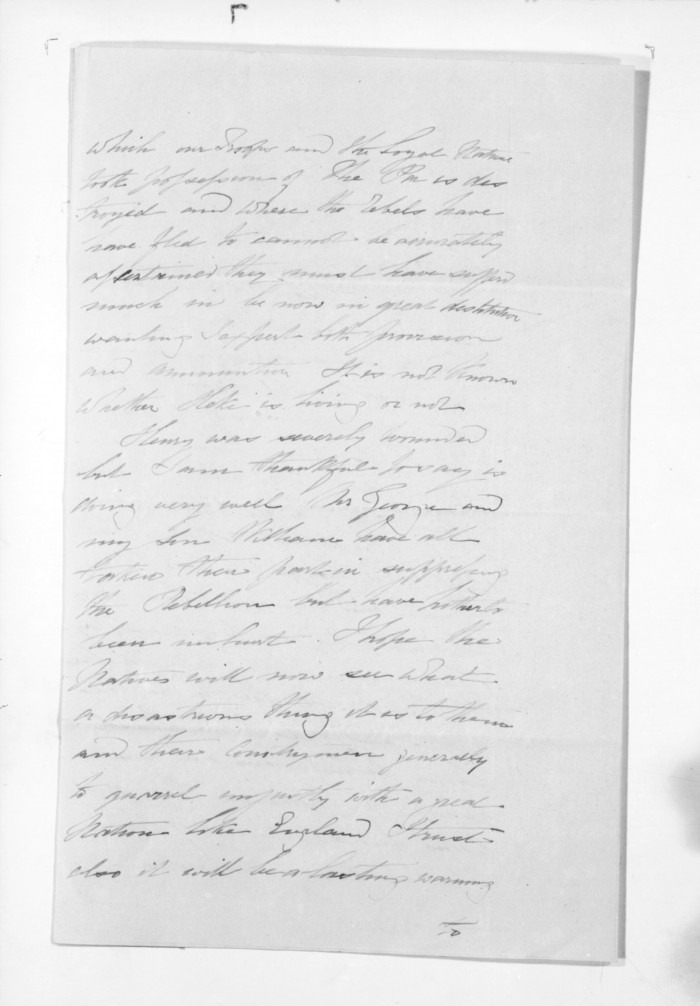 which our Troops and the Loyal Native
took possession of The Pa is des
troyed and where the rebels have
have fled to cannot be accurately
assertained they must have suffd
much in be now in great destitution
wanting I expect both provision
and ammunition It is not known
whether Heke is living or not
Henry was severely wounded
but I am thankful to say is
doing very well Mr George and
my Son William have all
taken their part in suppressing
the Rebellion but have hitherto
been unhurt. I hope the
Natives will now see what
a disastrous thing it is to them
and their Countrymen generally
to quarrel unjustly with a great
Nation like England I trust
also it will be a lasting warning
to